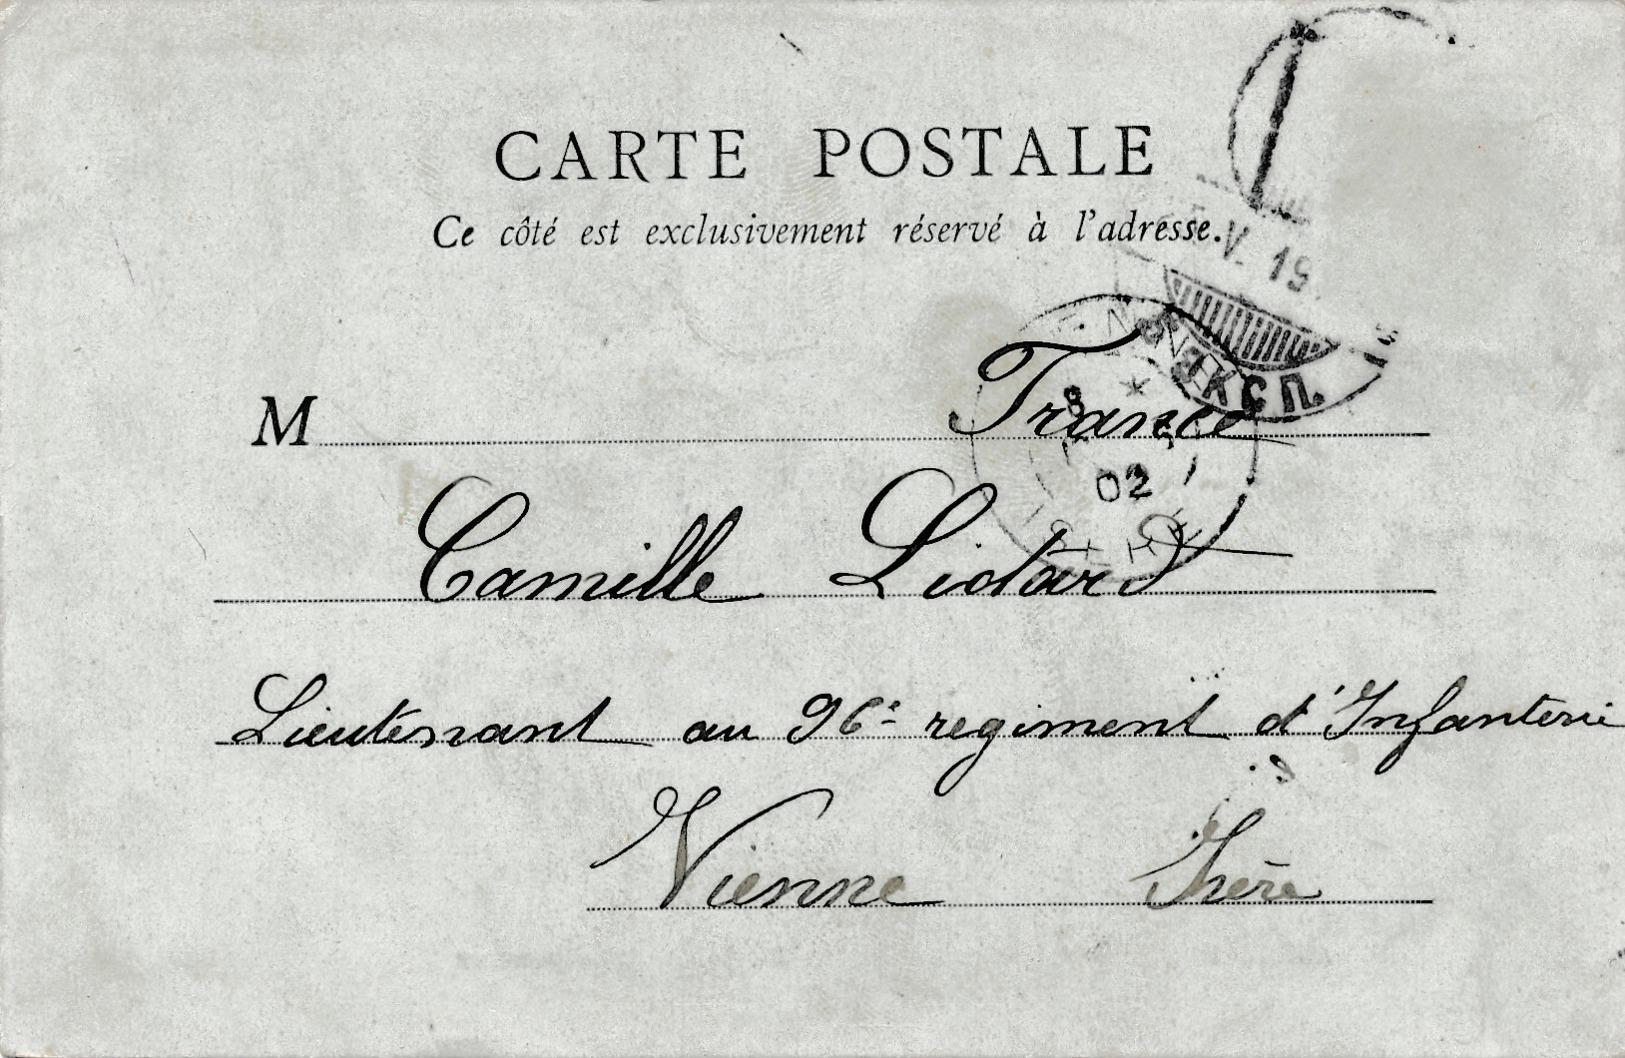 CARTE POSTALE
Ce côté est exclusivement réservé à l'adresse.
V. 19
ЭКСП.
M France
8
02
Camille Liotard
Lieutenant au 96e regiment d'Infanterie
Vienne Isère